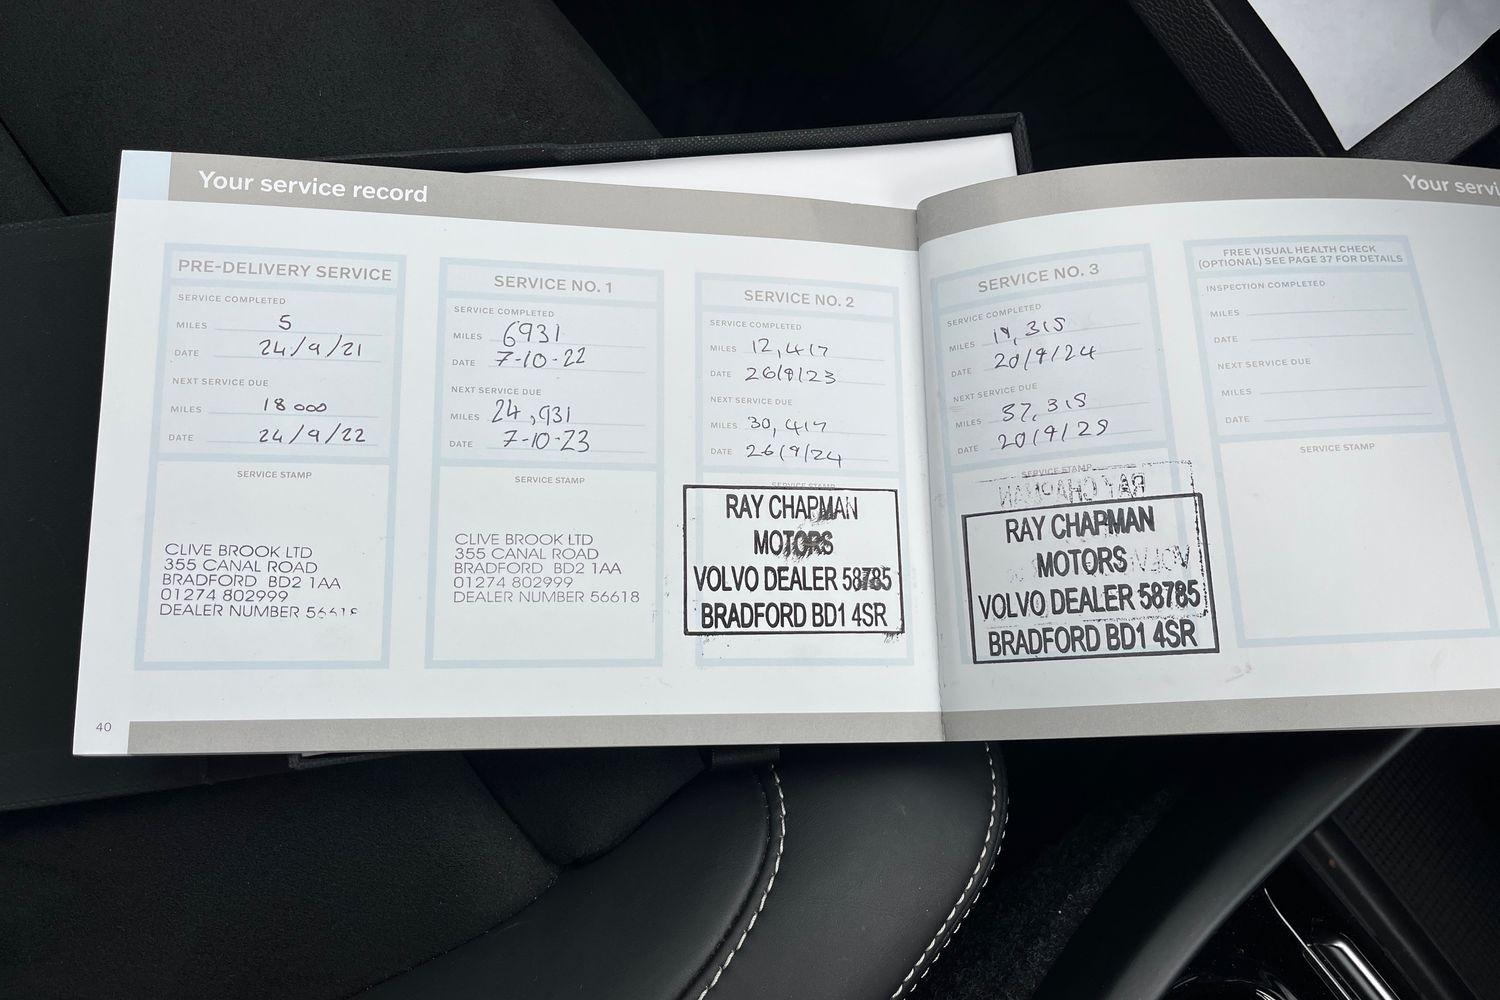 Your service record
PRE-DELIVERY SERVICE
SERVICE COMPLETED
MILES 5
DATE 24/9/21
NEXT SERVICE DUE
MILES 18000
DATE 24/9/22
SERVICE STAMP
CLIVE BROOK LTD
355 CANAL ROAD
BRADFORD BD2 1AA
01274 802999
DEALER NUMBER
SERVICE NO. 1
SERVICE COMPLETED
MILES 6931
DATE 7-10-22
NEXT SERVICE DUE
MILES 24,931
DATE 7-10-23
SERVICE STAMP
CLIVE BROOK LTD
355 CANAL ROAD
BRADFORD BD2 1AA
01274 802999
DEALER NUMBER 56618
SERVICE NO. 2
SERVICE COMPLETED
MILES 12,417
DATE 26/9/23
NEXT SERVICE DUE
MILES 30,417
DATE 26/9/24
SERVICE STAMP
RAY CHAPMAN
MOTORS
VOLVO DEALER 58785
BRADFORD BD1 4SR
40
Your
SERVICE NO. 3
SERVICE COMPLETED
MILES 19,315
DATE 20/9/24
NEXT SERVICE DUE
MILES 37,315
DATE 20/9/25
SERVICE STAMP
RAY CHAPMAN
MOTORS
VOLVO DEALER 58785
BRADFORD BD1 4SR
FREE VISUAL HEALTH CHECK
(OPTIONAL) SEE PAGE 37 FOR DETAILS
INSPECTION COMPLETED
MILES
DATE
NEXT SERVICE DUE
MILES
DATE
SERVICE STAMP